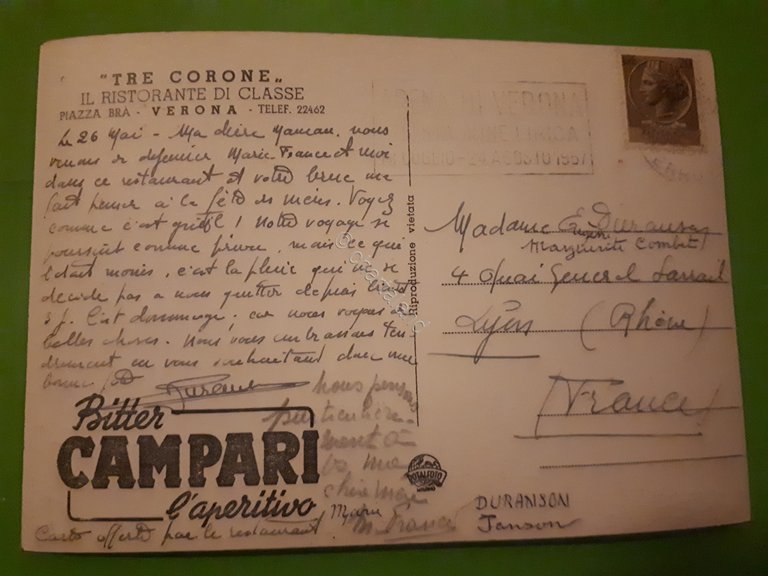 "TRE CORONE„
IL RISTORANTE DI CLASSE
PIAZZA BRA - VERONA - TELEF. 22462
Le 26 Mai - Ma chère Maman, nous
venons de déjeuner, Marie France et moi
dans ce restaurant et votre
fait penser à la fête des mères. Voyez
comme c'est gentil! Notre voyage se
poursuit comme prévu, mais ce qui
l'était moins, c'est la pluie qui ne se
décide pas à nous quitter depuis
3 j. C'est dommage, car nous voyons de
belles choses. Nous vous embrassons ten
drement en vous souhaitant donc une
bonne
nous pensons
particulière
ment à
ma
chère
Mamie
M. France
Bitter
CAMPARI
l'aperitivo
Carte offerte par le restaurant
Riproduzione vietata
VERONA
Madame E. Duranson
Marguerite Combet
4 Quai General Sarrail
Lyon (Rhône)
France
ROTALFOTO
MILANO
DURANSON
Janson